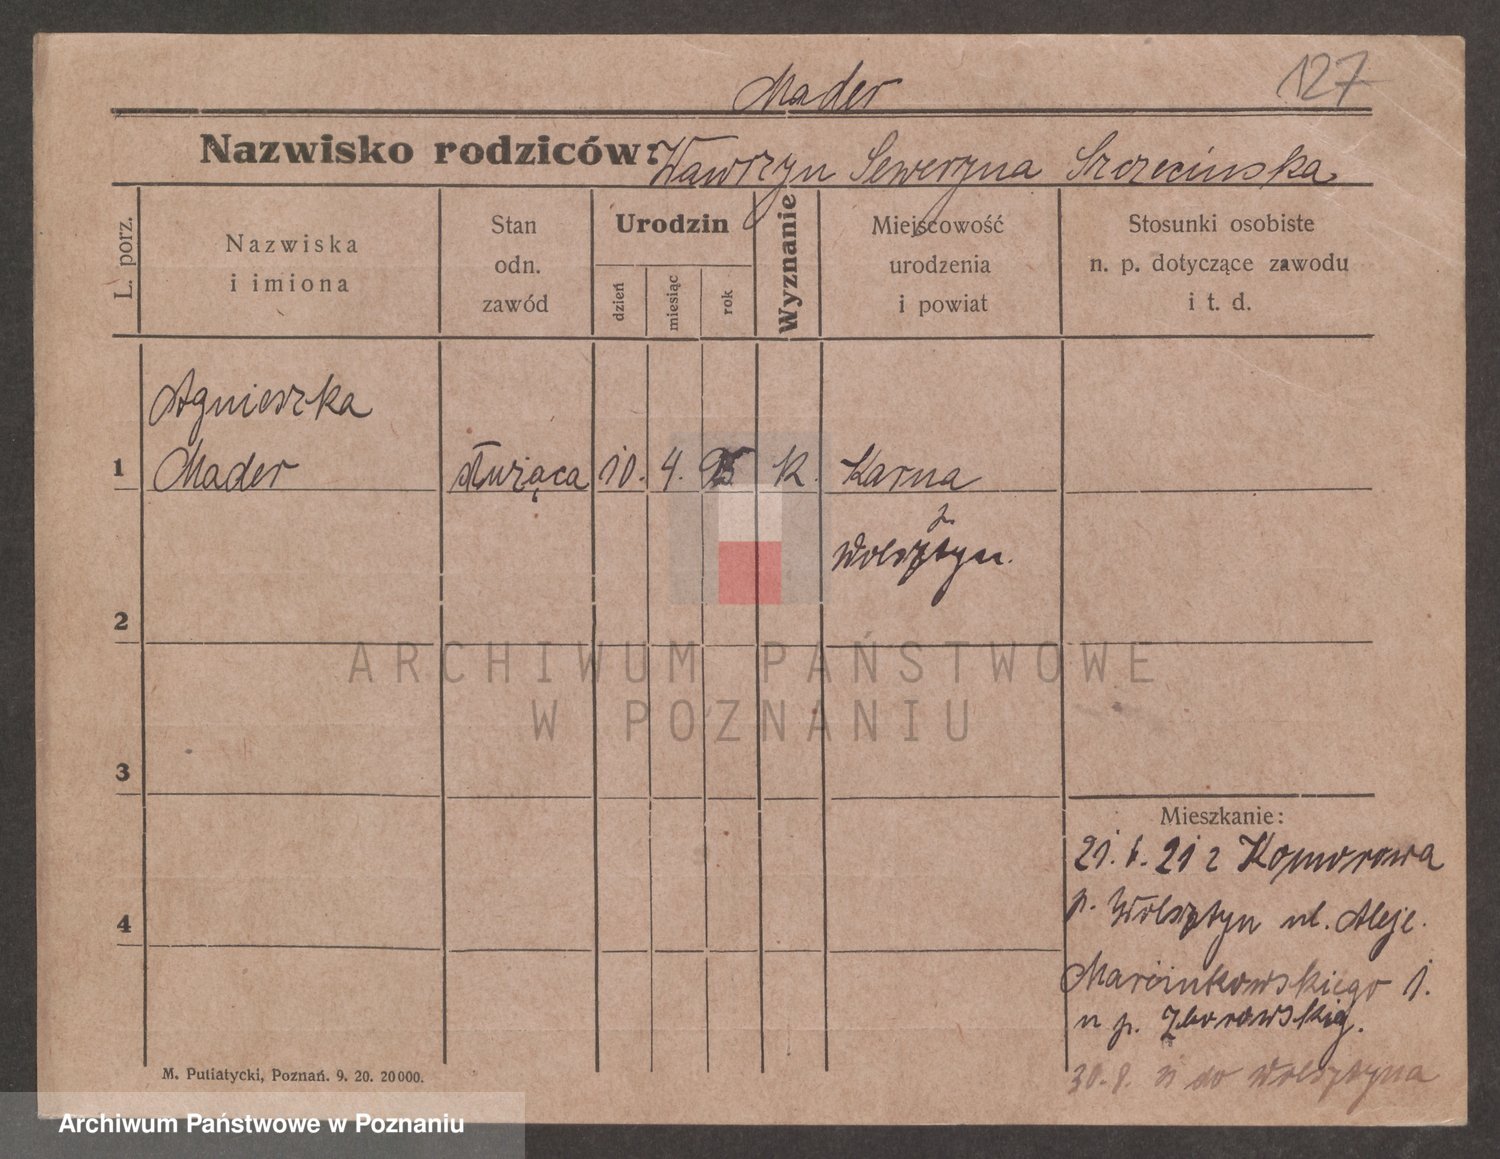 Mader
127
Nazwisko rodziców: Wawrzyn Seweryna Szczecinska
L. porz.
Nazwiska
i imiona
Stan
odn.
zawód
Urodzin
dzień
miesiąc
rok
Wyznanie
Miejscowość
urodzenia
i powiat
Stosunki osobiste
n. p. dotyczące zawodu
i t. d.
Agnieszka
1 Mader służąca 10. 4. 95 k. Karna
p.
Wolsztyn.
2
ARCHIWUM PAŃSTWOWE
W POZNANIU
3
Mieszkanie:
21. 6. 21 z Komorowa
4
p. Wolsztyn ul. Aleje.
Marcinkowskiego 1.
u p. Zborowskiej.
30. 8. 21 do Wolsztyna
M. Putiatycki, Poznań. 9. 20. 20000.
Archiwum Państwowe w Poznaniu